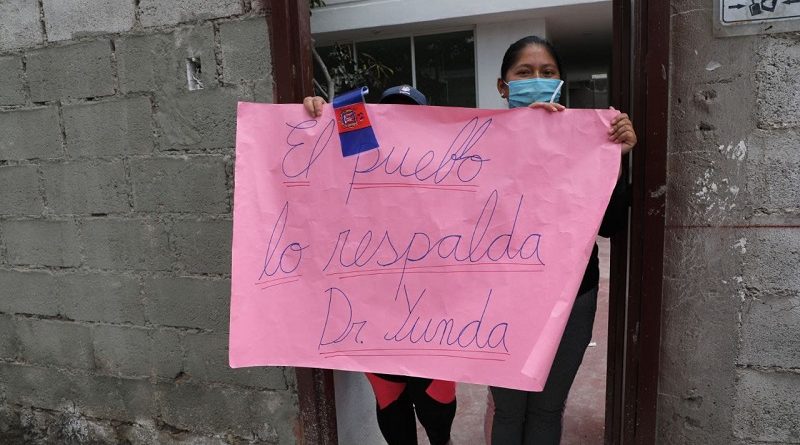 El pueblo
lo respalda
Dr. Yunda